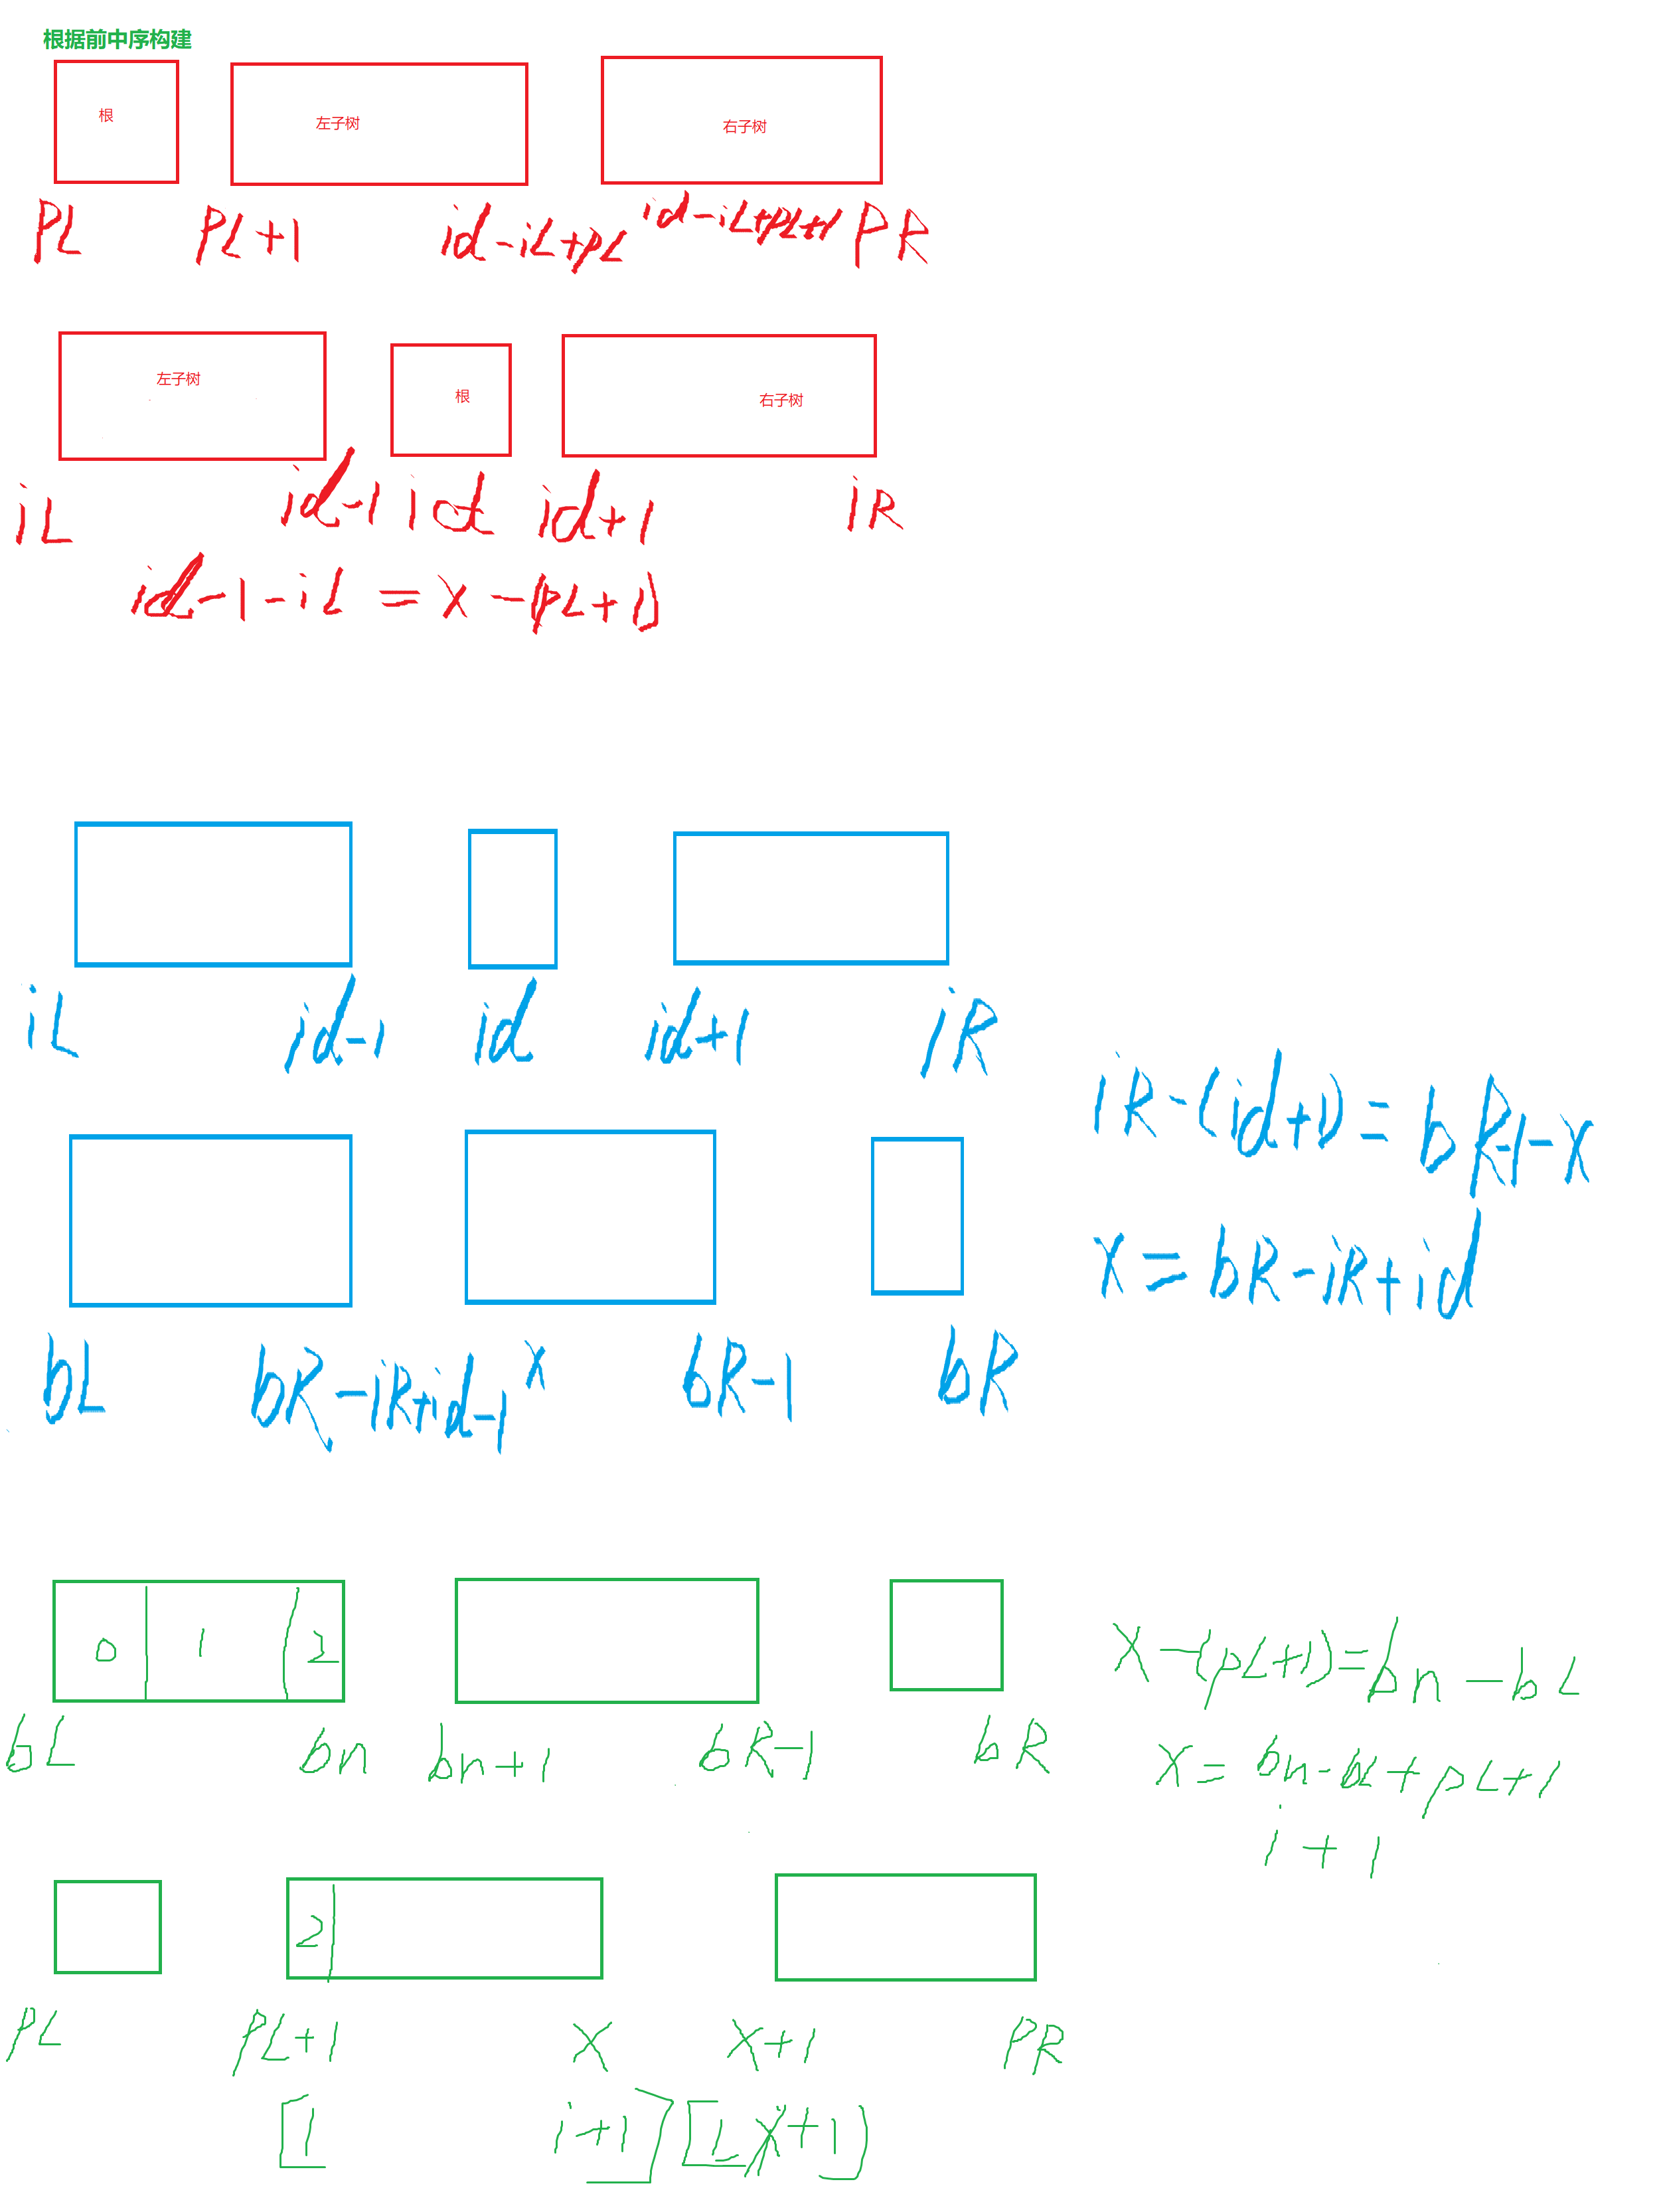 根据前中序构建
根 左子树 右子树
PL PL+1 id-iL+PL id-iL+PL+1 PR
左子树 根 右子树
iL id-1 id id+1 iR
id-1-iL=x-(PL+1)
iL id-1 id id+1 iR
iR-(id+1)=bR-1-x
x=bR-iR+id
bL bR-iR+id-1 x bR-1 bR
0 1 2
x-(PL+1)=bn-bL
bL bn bn+1 bR-1 bR
x=bn-bL+PL+1
i+1
2
PL PL+1 x x+1 PR
[1 i+1]